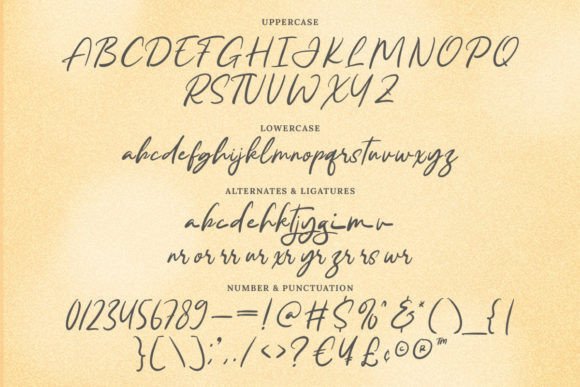 UPPERCASE
ABCDEFGHIJKLMNOPQ
RSTUVWXYZ
LOWERCASE
abcdefghijklmnopqrstuvwxyz
ALTERNATES & LIGATURES
abcdehktjygimv
nr or rr ur xr yr zr rs wr
NUMBER & PUNCTUATION
0123456789–=!@#$%^&*()_{|
}[\]:";../<>?€¥£¢©®™